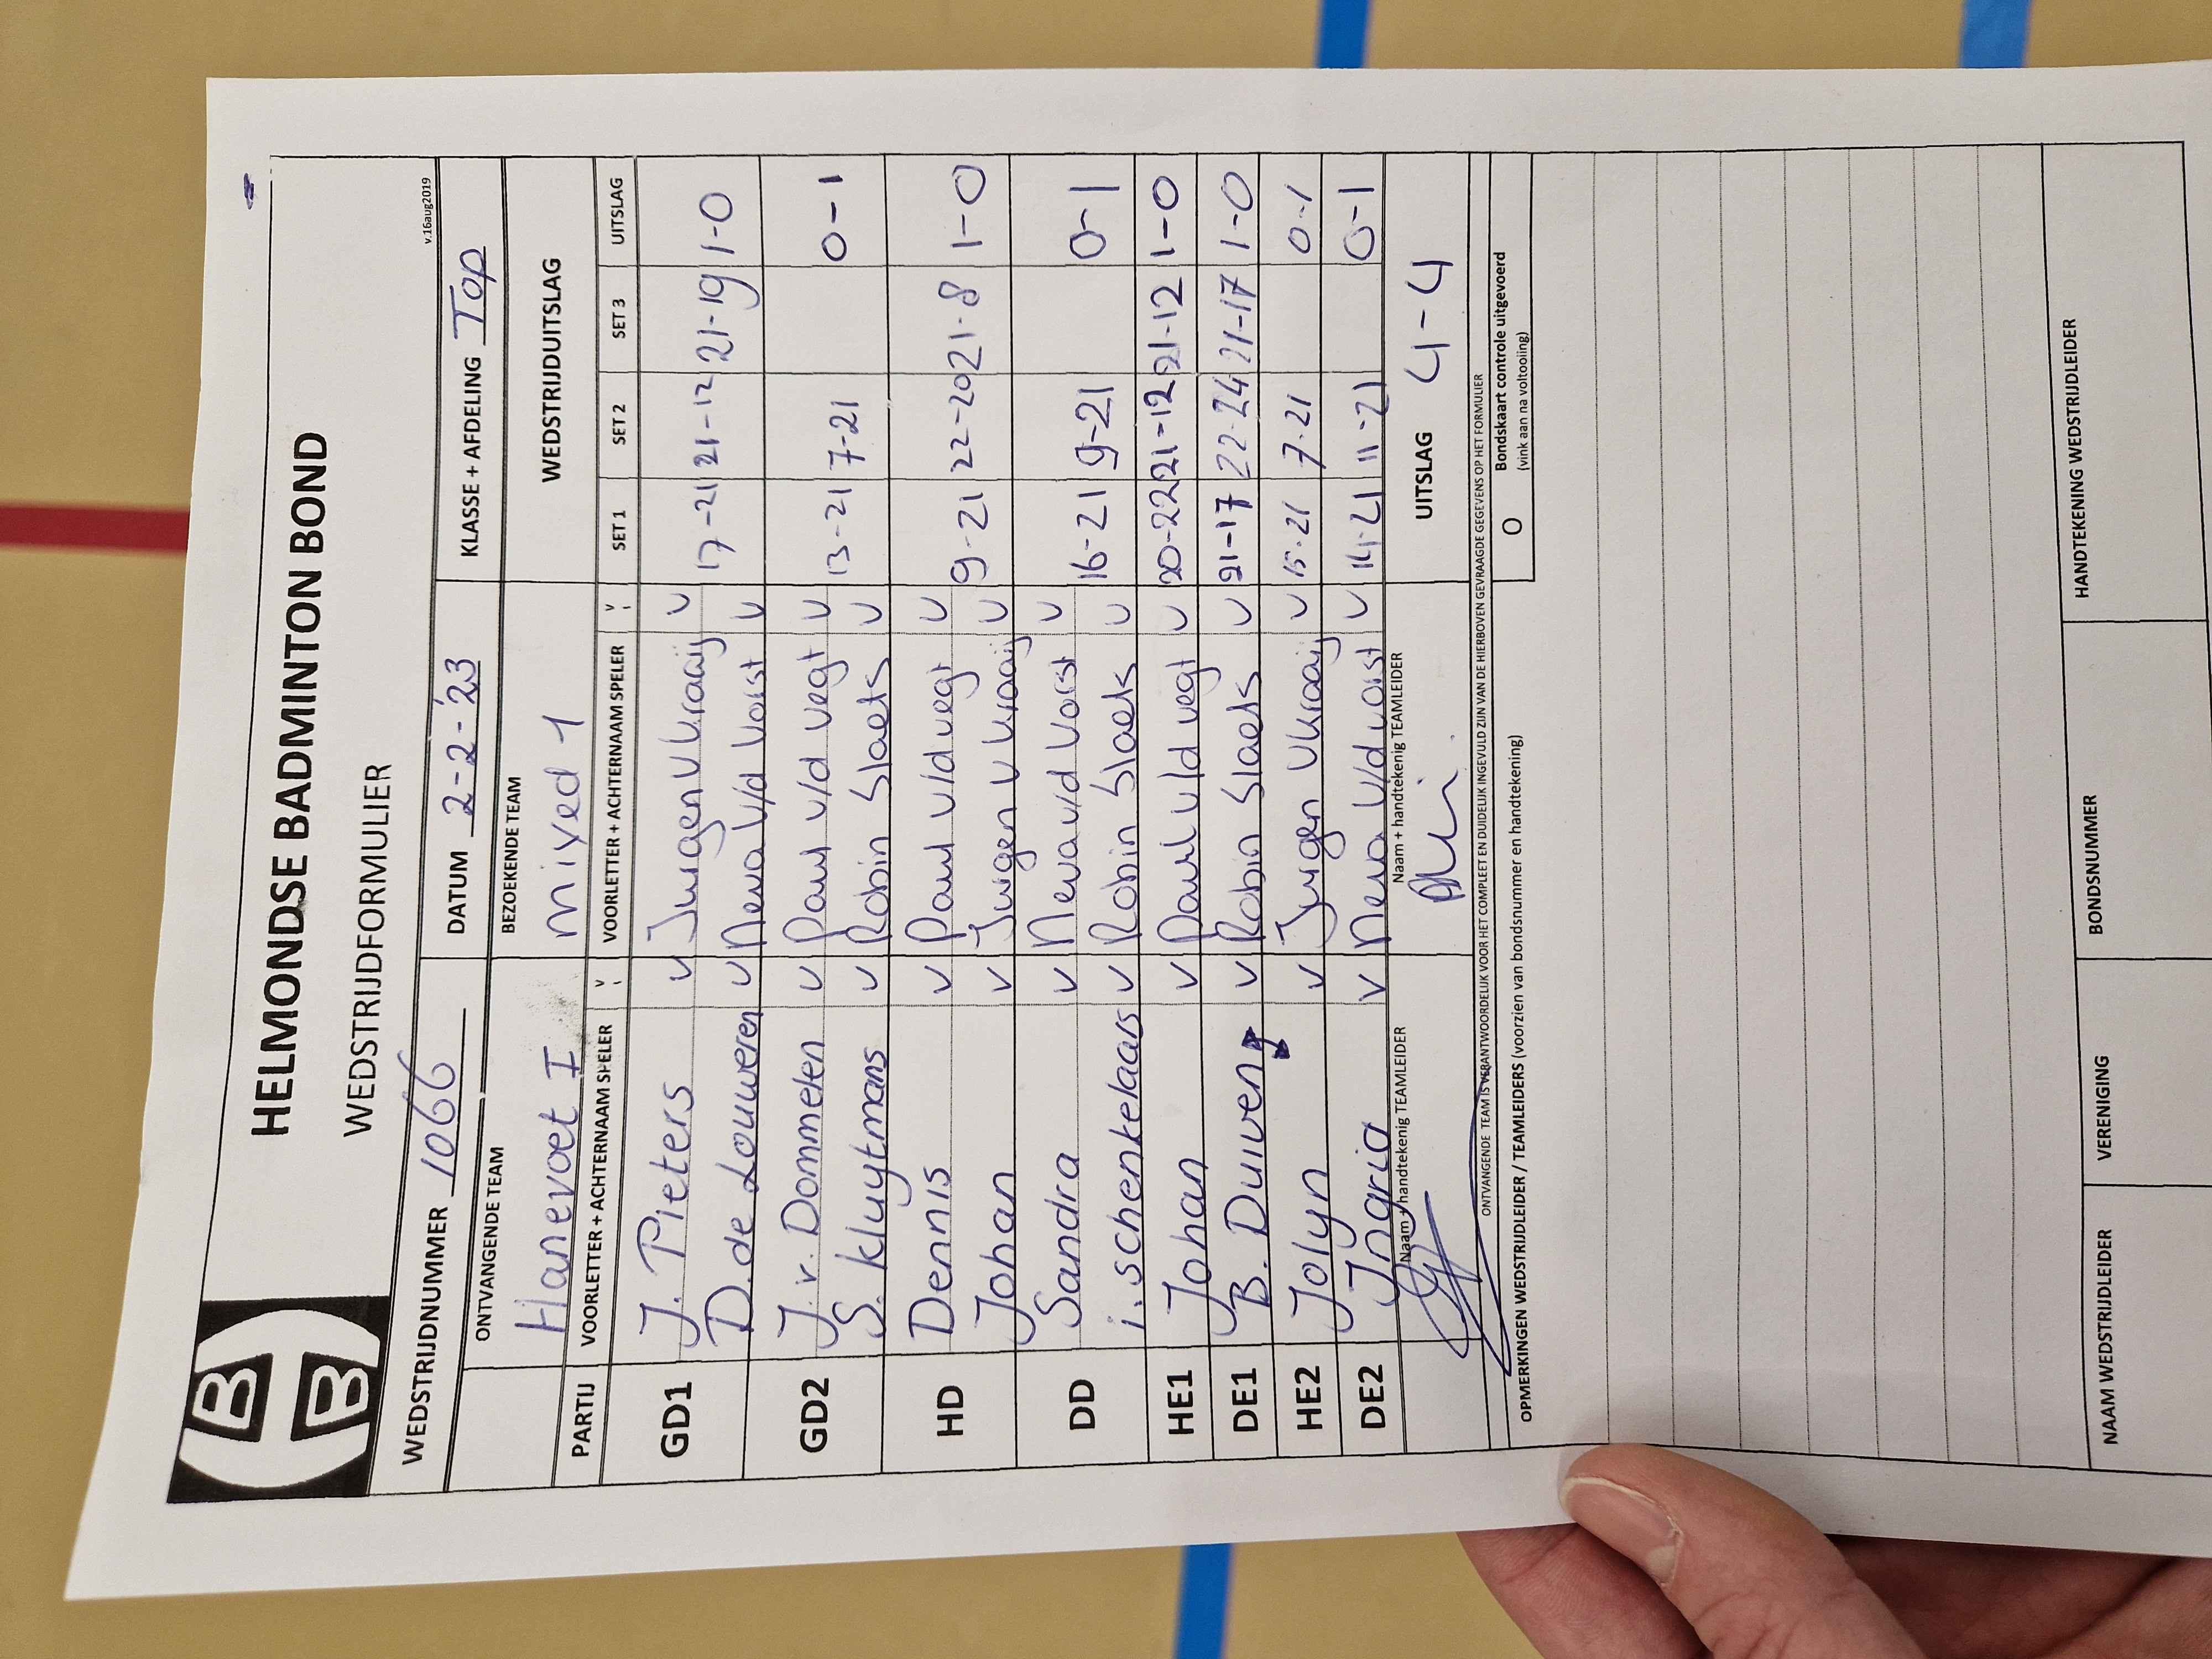 HELMONDSE BADMINTON BOND
WEDSTRIJDFORMULIER
v.16aug2019
WEDSTRIJDNUMMER 1066 DATUM 2-2-'23 KLASSE + AFDELING Top
ONTVANGENDE TEAM BEZOEKENDE TEAM WEDSTRIJDUITSLAG
Hanevoet I mixed 1
PARTIJ VOORLETTER + ACHTERNAAM SPELER V VOORLETTER + ACHTERNAAM SPELER V SET 1 SET 2 SET 3 UITSLAG
J. Pieters v Jurgen v Kraaij v
GD1 17-21 21-12 21-19 1-0
D. de Louweren v Newa v/d Vorst v
J. v. Dommelen v Paul v/d Vegt v
GD2 13-21 7-21 0-1
S. Kluytmans v Robin Slaets v
Dennis v Paul v/d Vegt v
HD 9-21 22-20 21-8 1-0
Johan v Jurgen v Kraaij v
Sandra v Newa v/d Vorst v
DD 16-21 9-21 0-1
i. schenkelaars v Robin Slaets v
HE1 Johan v Paul v/d Vegt v 20-22 21-12 21-12 1-0
DE1 B. Duiven v Robin Slaets v 21-17 22-24 21-17 1-0
HE2 Jolyn v Jurgen v Kraaij v 15-21 7-21 0-1
DE2 Ingrid v Newa v/d Vorst v 14-21 11-21 0-1
Naam + handtekenig TEAMLEIDER Naam + handtekenig TEAMLEIDER UITSLAG 4-4
ONTVANGENDE TEAM IS VERANTWOORDELIJK VOOR HET COMPLEET EN DUIDELIJK INGEVULD ZIJN VAN DE HIERBOVEN GEVRAAGDE GEGEVENS OP HET FORMULIER
OPMERKINGEN WEDSTRIJDLEIDER / TEAMLEIDERS (voorzien van bondsnummer en handtekening) O Bondskaart controle uitgevoerd
(vink aan na voltooiing)
NAAM WEDSTRIJDLEIDER VERENIGING BONDSNUMMER HANDTEKENING WEDSTRIJDLEIDER